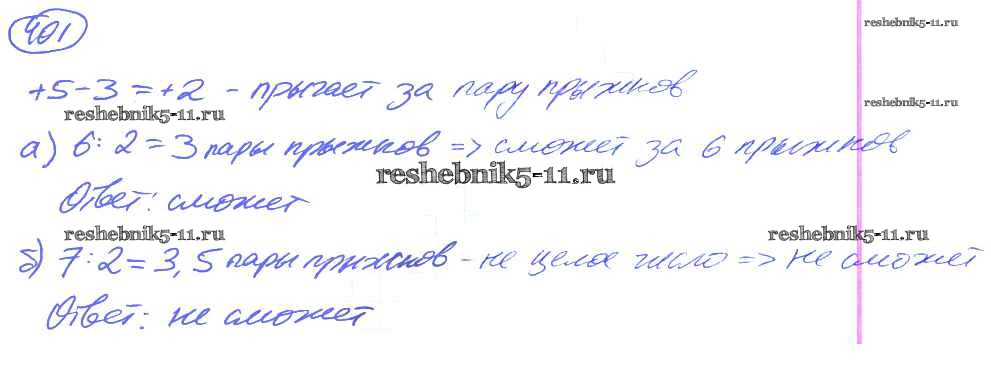 401
reshebnik5-11.ru
+5-3=+2 - прыгает за пару прыжков
reshebnik5-11.ru
reshebnik5-11.ru
а) 6:2=3 пары прыжков => сможет за 6 прыжков
reshebnik5-11.ru
Ответ: сможет
reshebnik5-11.ru
reshebnik5-11.ru
б) 7:2=3,5 пары прыжков - не целое число => не сможет
Ответ: не сможет